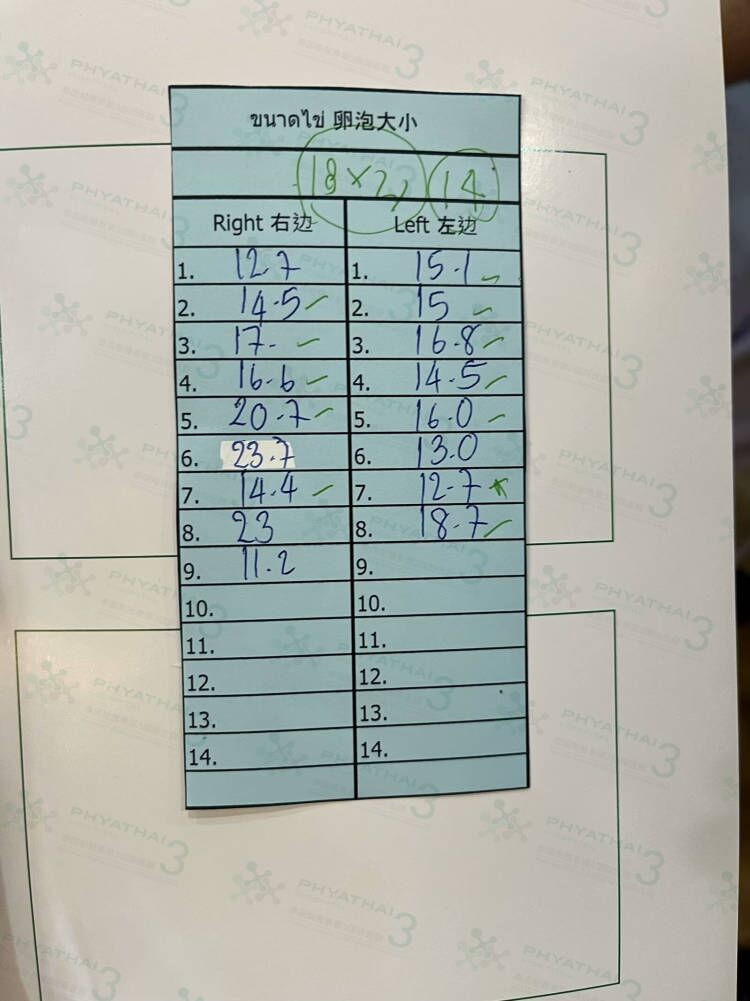 ขนาดไข่ 卵泡大小
18 × 2, 14
Right 右边 Left 左边
1. 12.7 1. 15.1 ✓
2. 14.5 ✓ 2. 15 ✓
3. 17. ✓ 3. 16.8 ✓
4. 16.6 ✓ 4. 14.5 ✓
5. 20.7 ✓ 5. 16.0 ✓
6. 23.7 6. 13.0
7. 14.4 ✓ 7. 12.7
8. 23 8. 18.7 ✓
9. 11.2 9.
10. 10.
11. 11.
12. 12.
13. 13.
14. 14.
PHYATHAI 3